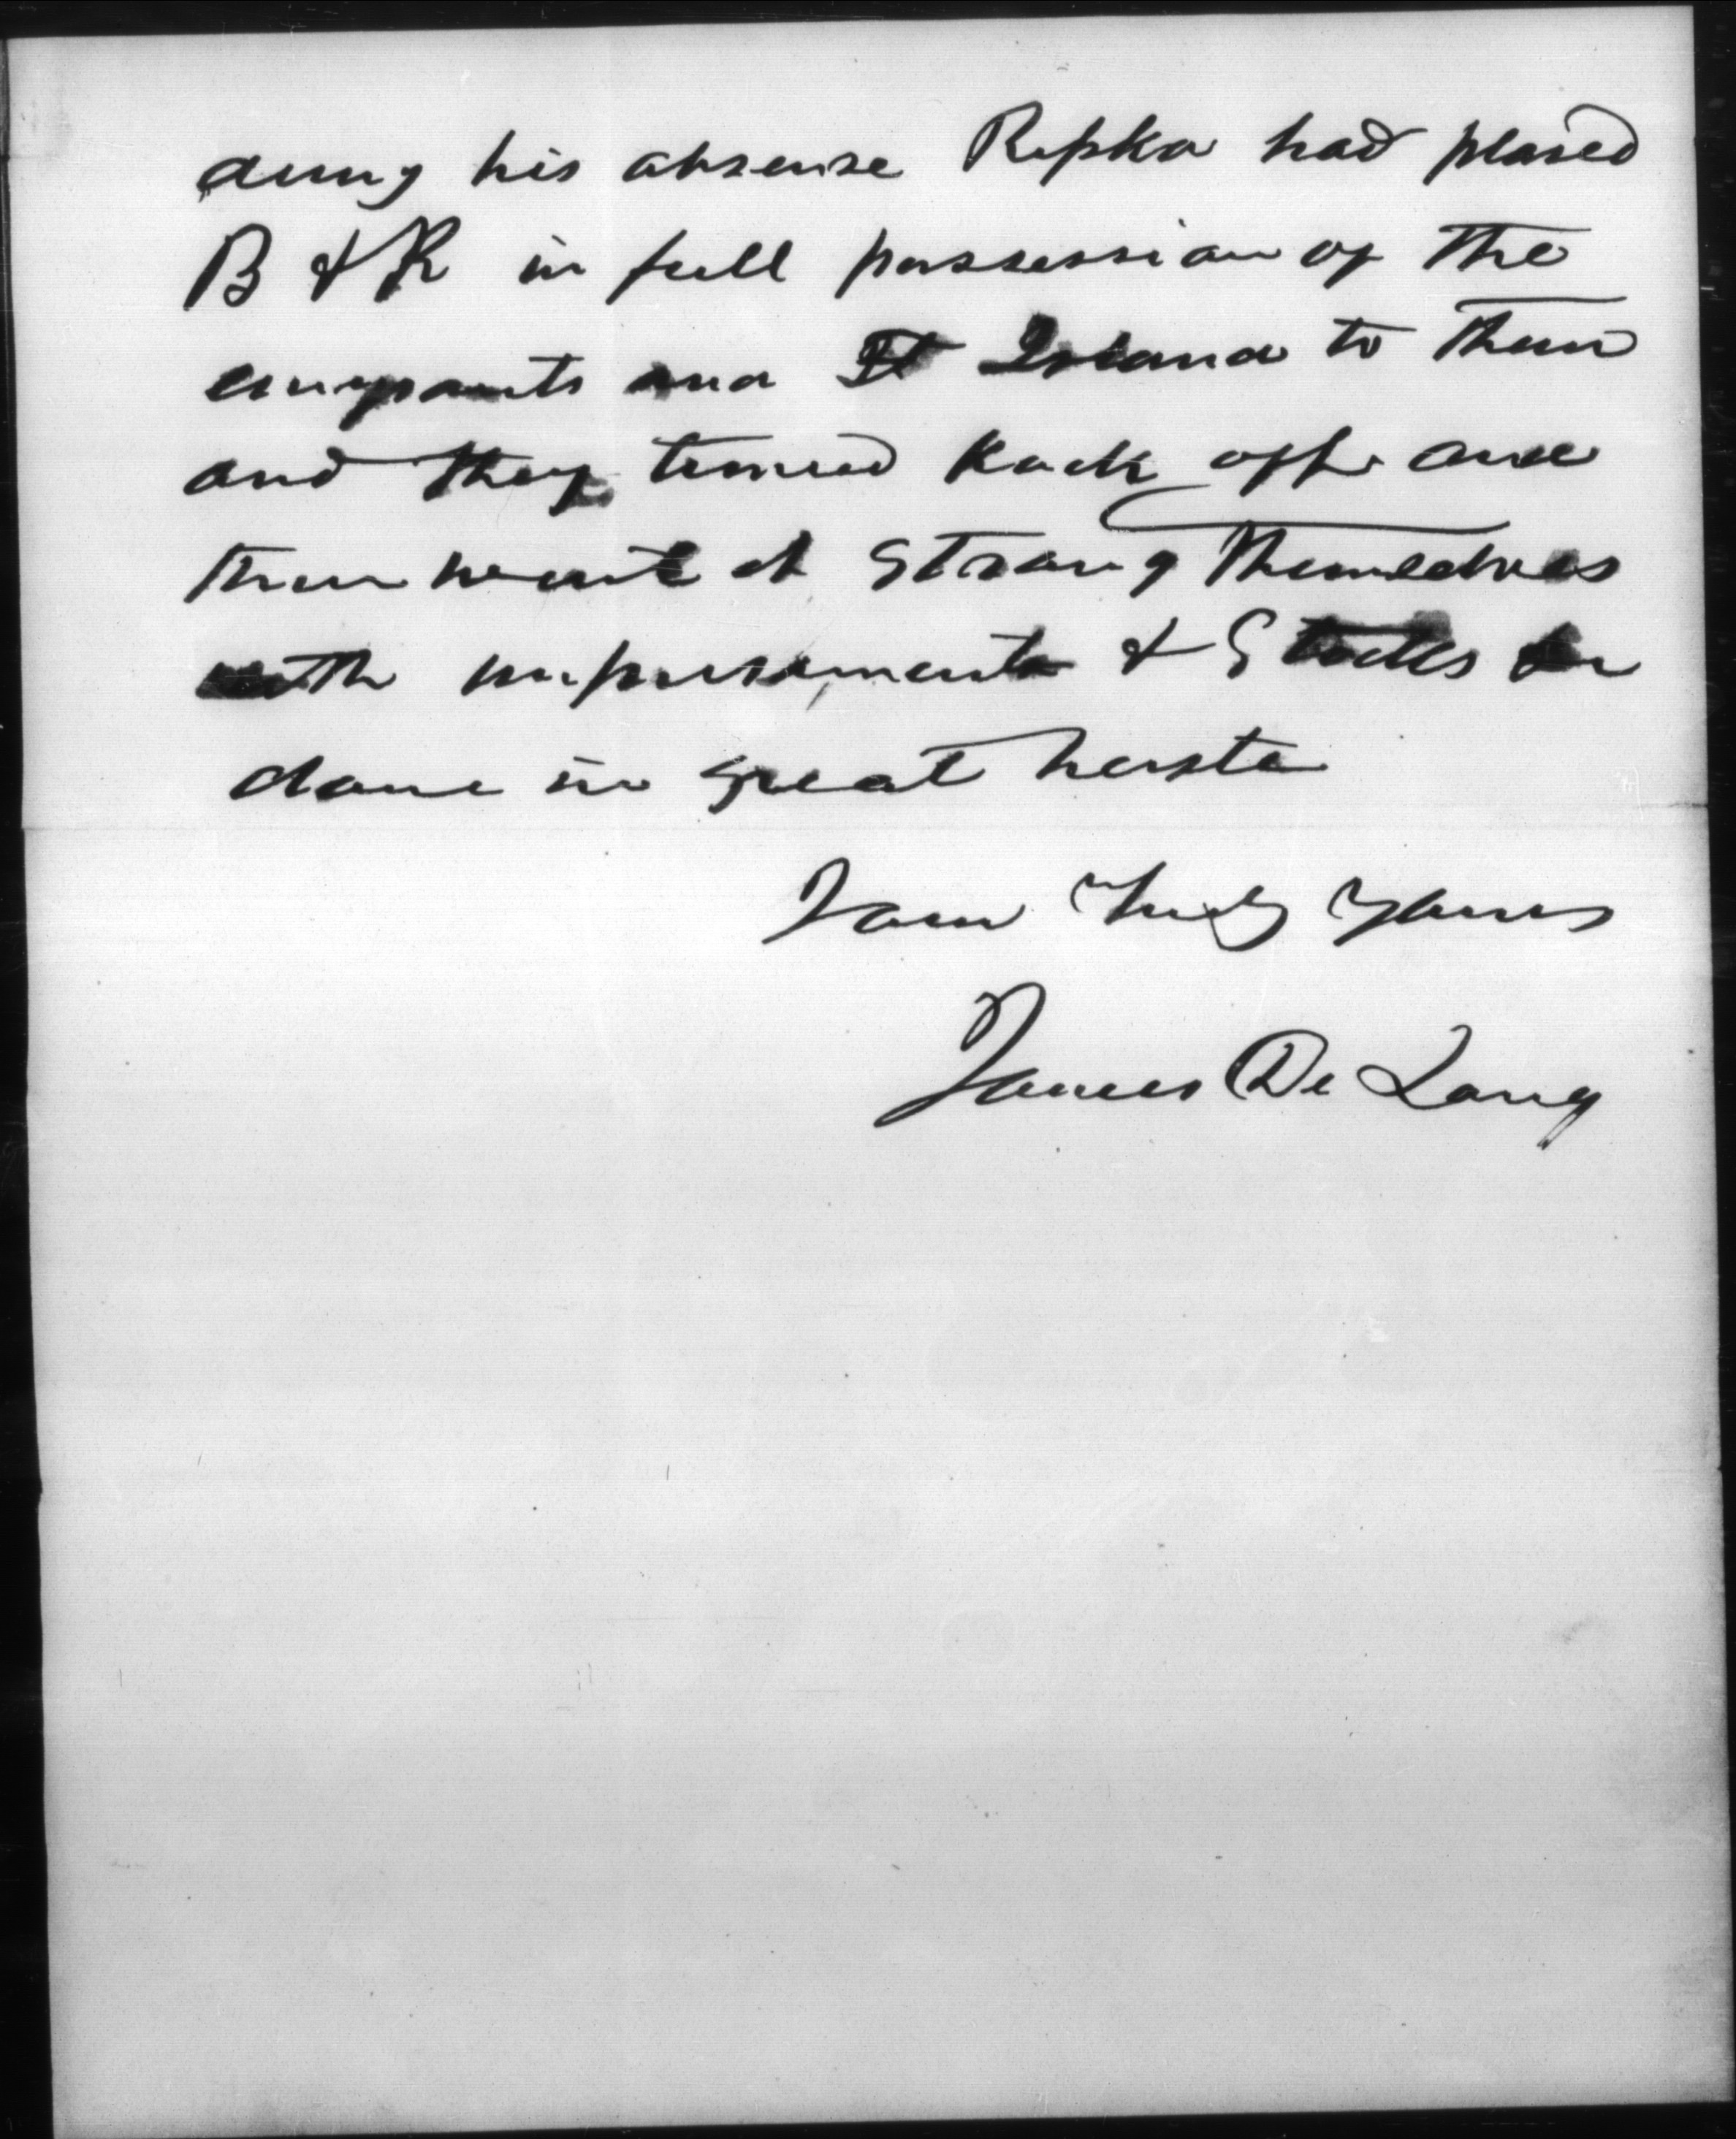 during his absense Ripka had plased
B & R in full possession of the
emigrants and Island to them
and they turned Kock off and
then went at Strong themselves
with imprisonment & Stocks &c
done in great haste
I am Truly Yours
James De Long